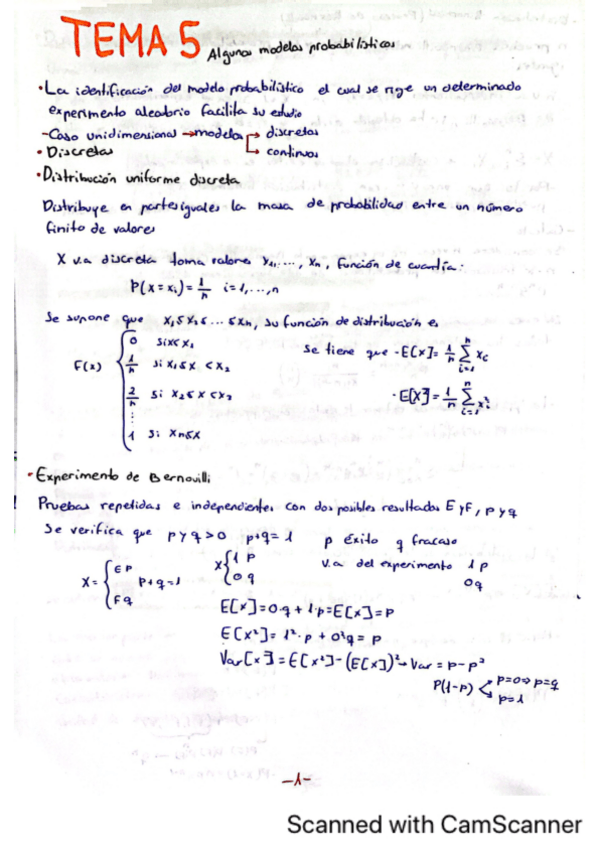 TEMA 5 Algunos modelos probabilísticos
•La identificación del modelo probabilístico el cual se rige un determinado
experimento aleatorio facilita su estudio
-Caso unidimensional → modelos → discretos
→ continuos
• Discretas
•Distribución uniforme discreta
Distribuye en partes iguales la masa de probabilidad entre un número
finito de valores
X v.a discreta toma valores x₁,..., xₙ, función de cuantía:
P(x=xᵢ)= 1/n i=1,...,n
Se supone que x₁≤x₂≤...≤xₙ, su función de distribución es
F(x) { 0 si x<x₁
1/n si x₁≤x<x₂
2/n si x₂≤x<x₃
⋮
1 si xₙ≤x
Se tiene que -E[x]= 1/n Σ xᵢ
i=1 n
·E[X]= 1/n Σ xᵢ²
i=1 n
•Experimento de Bernouilli
Pruebas repetidas e independientes con dos posibles resultados E y F, p y q
Se verifica que p y q>0 p+q=1 p éxito q fracaso
X= { E p
F q
p+q=1
x { 1 p
0 q
v.a. del experimento 1 p
0 q
E[x]=0·q+1·p=E[x]=p
E[x²]=1²·p+0²q=p
Var[x]=E[x²]-(E[x])²→Var=p-p²
p(1-p) < p=0⇒p=q
p=1
-1-
Scanned with CamScanner